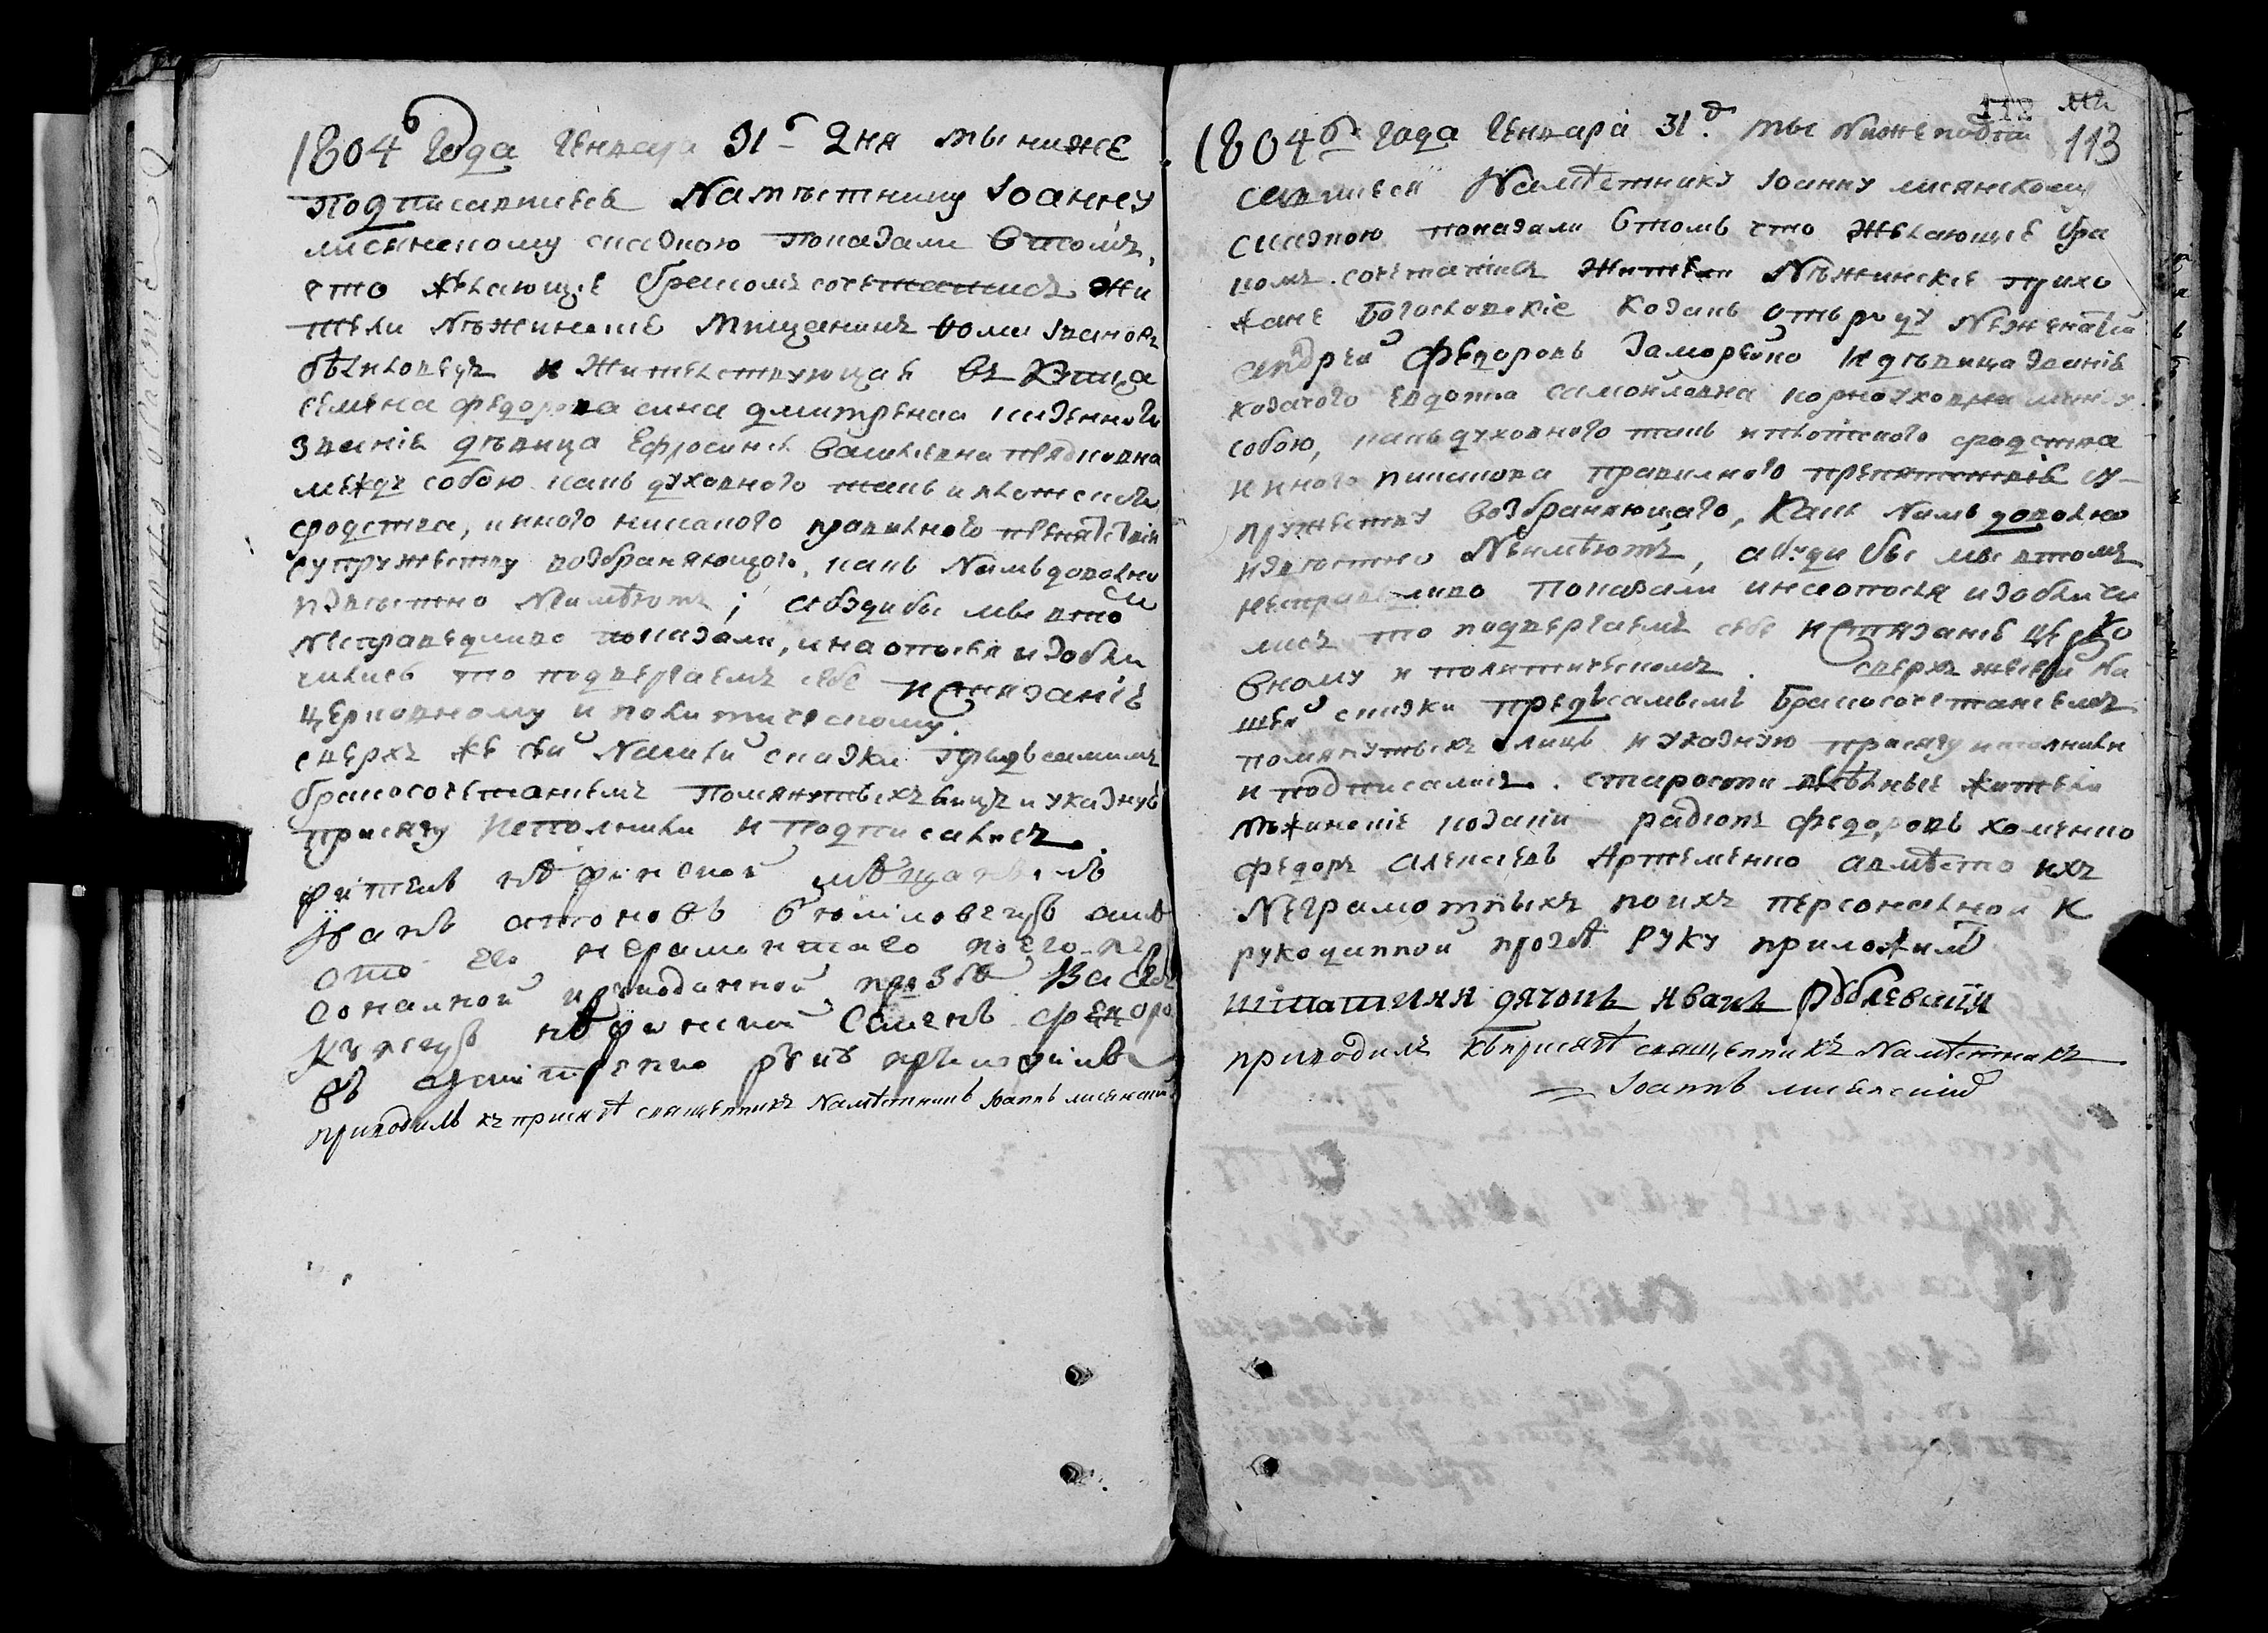 1804го года Генваря 31го Дня мы ниже
подписавшиесь Наместнику Iоанну
лисянскому сказкою показали втомъ,
что желающіе бракомъ сочетатись жи
тели Нѣжинскіе мѣщанинъ Фома Ивановъ
и жительствующая въ
семена федорова сина дмитренка казенного
званіе дѣвица Ефросиніе
между собою какъ духовного такъ и плотского
сродства, и иного никакого правилного препятствія
супружеству возбраняющого, какъ Намъ доволно
извѣстно Неимѣютъ; абуди бы мы втомъ
Несправедливо показали, и на опосля изобли
чились то подвергаемъ себе истязаніе
церковному и политическому.
сверхъ же сей Нашей сказки предъ самимъ
бракосочетаніемъ помянутыхъ лицъ и указную
присягу исполнили и подписались.
житель нѣжинской мѣщанинъ
Иванъ антоновъ вмѣ
сто его неграмотнаго по его пер
соналной и рукоданной прозбѣ
нѣжинской Семенъ федоро
въ дмитренко руку приложилъ
приводилъ къ присягѣ священникъ Намѣстникъ Iоаннъ лисянскій
112
113
1804го года Генваря 31го мы Нижеподпи
савшиеся Намѣстнику Iоанну лисянскому
сказкою показали втомъ что желающіе бра
комъ сочетатись жители Нѣжинскіе прихо
жане Богословскіе козакъ отъ роду Неженатій
андрей федоровъ Заморейко и дѣвица званіе
козачого Евдокіа самойловна между
собою, какъ духовного такъ и плотского сродства
и иного никакова правилного препятствіе су-
пружеству возбраняющаго, какъ Намъ доволно
извѣстно Неимѣютъ, абуди бы мы втомъ
несправедливо показали и на опосля изобличи
лись то подвергаемъ себе истязаніе церко
вному и политическомъ. сверхъ жесей На
шей сказки предъ самымъ бракосочетаніемъ
помянутыхъ лицъ и указную присягу исполнили
и подписались. старости жители
нѣжинскіе козаки радіонъ федоровъ хоменко
федоръ алексеевъ Артеменко авмѣсто ихъ
Неграмотныхъ поихъ персоналной и
рукоданной прозбѣ руку приложилъ
дячокъ иванъ рублевскій
приводилъ къприсягѣ священникъ Намѣстникъ
Iоаннъ лисянскій